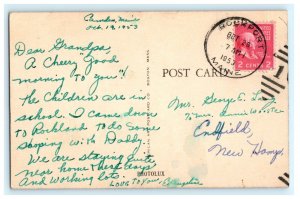 Camden, Maine
Oct. 19, 1953
Dear Grandpa,
A Cheery "Good
morning to you"!
The children are in
school. I came down
to Rockland to do some
shoping with Daddy.
We are staying quite
near home these days
and working lots.
Love to you,
POST CARD
ROCKPORT
OCT 20
7 AM
1953
MAINE
2 CENTS 2
1
Mrs. George E. L
Enfield
New Hamp.
BOSTON MASS.
PHOTOLUX